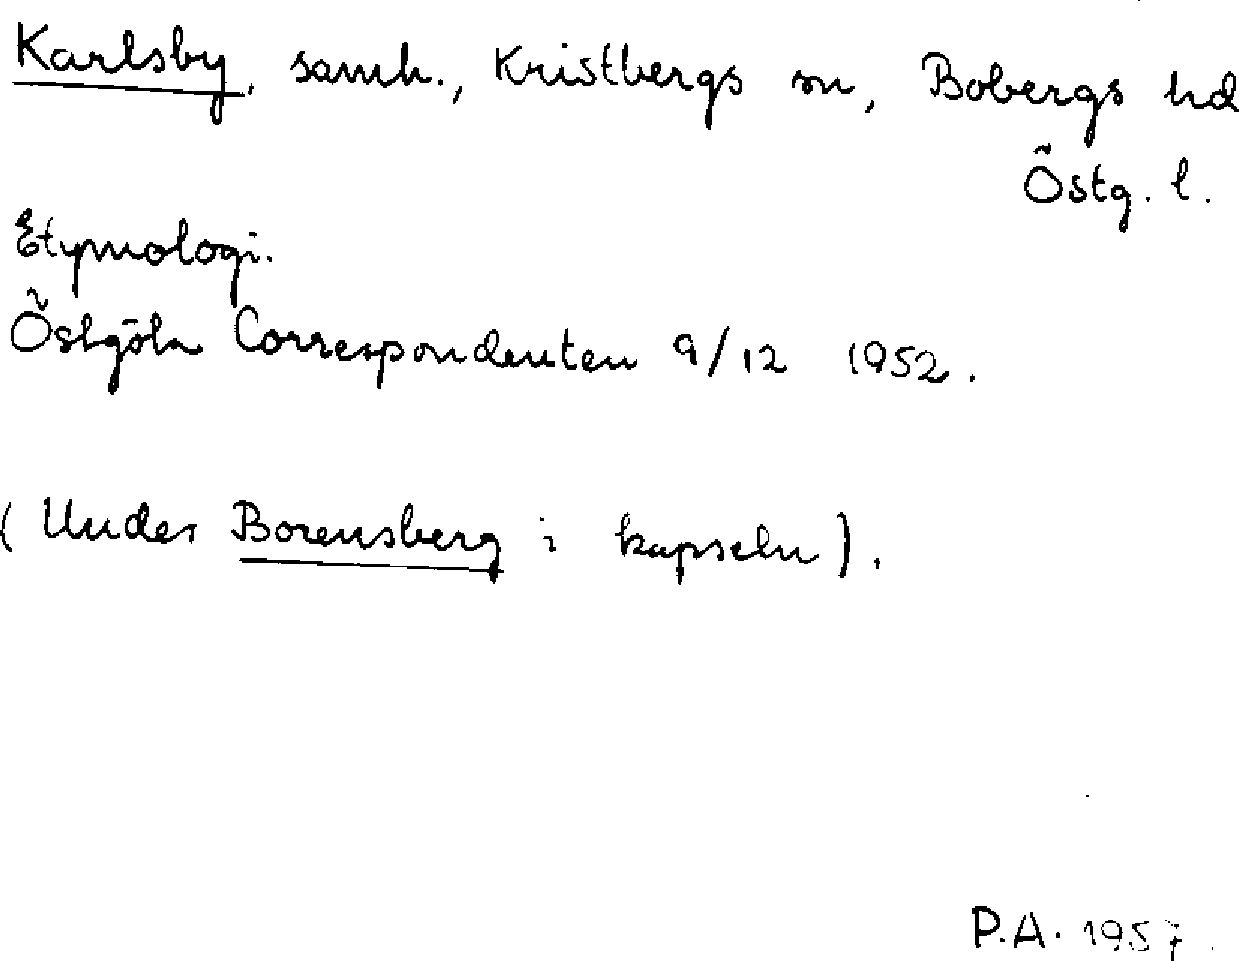 Karlsby, samh., Kristbergs sn, Bobergs hd
Östg. l.
Etymologi.
Östgöta Correspondenten 9/12 1952.
(Under Borensberg i kapseln).
P.A. 1957.